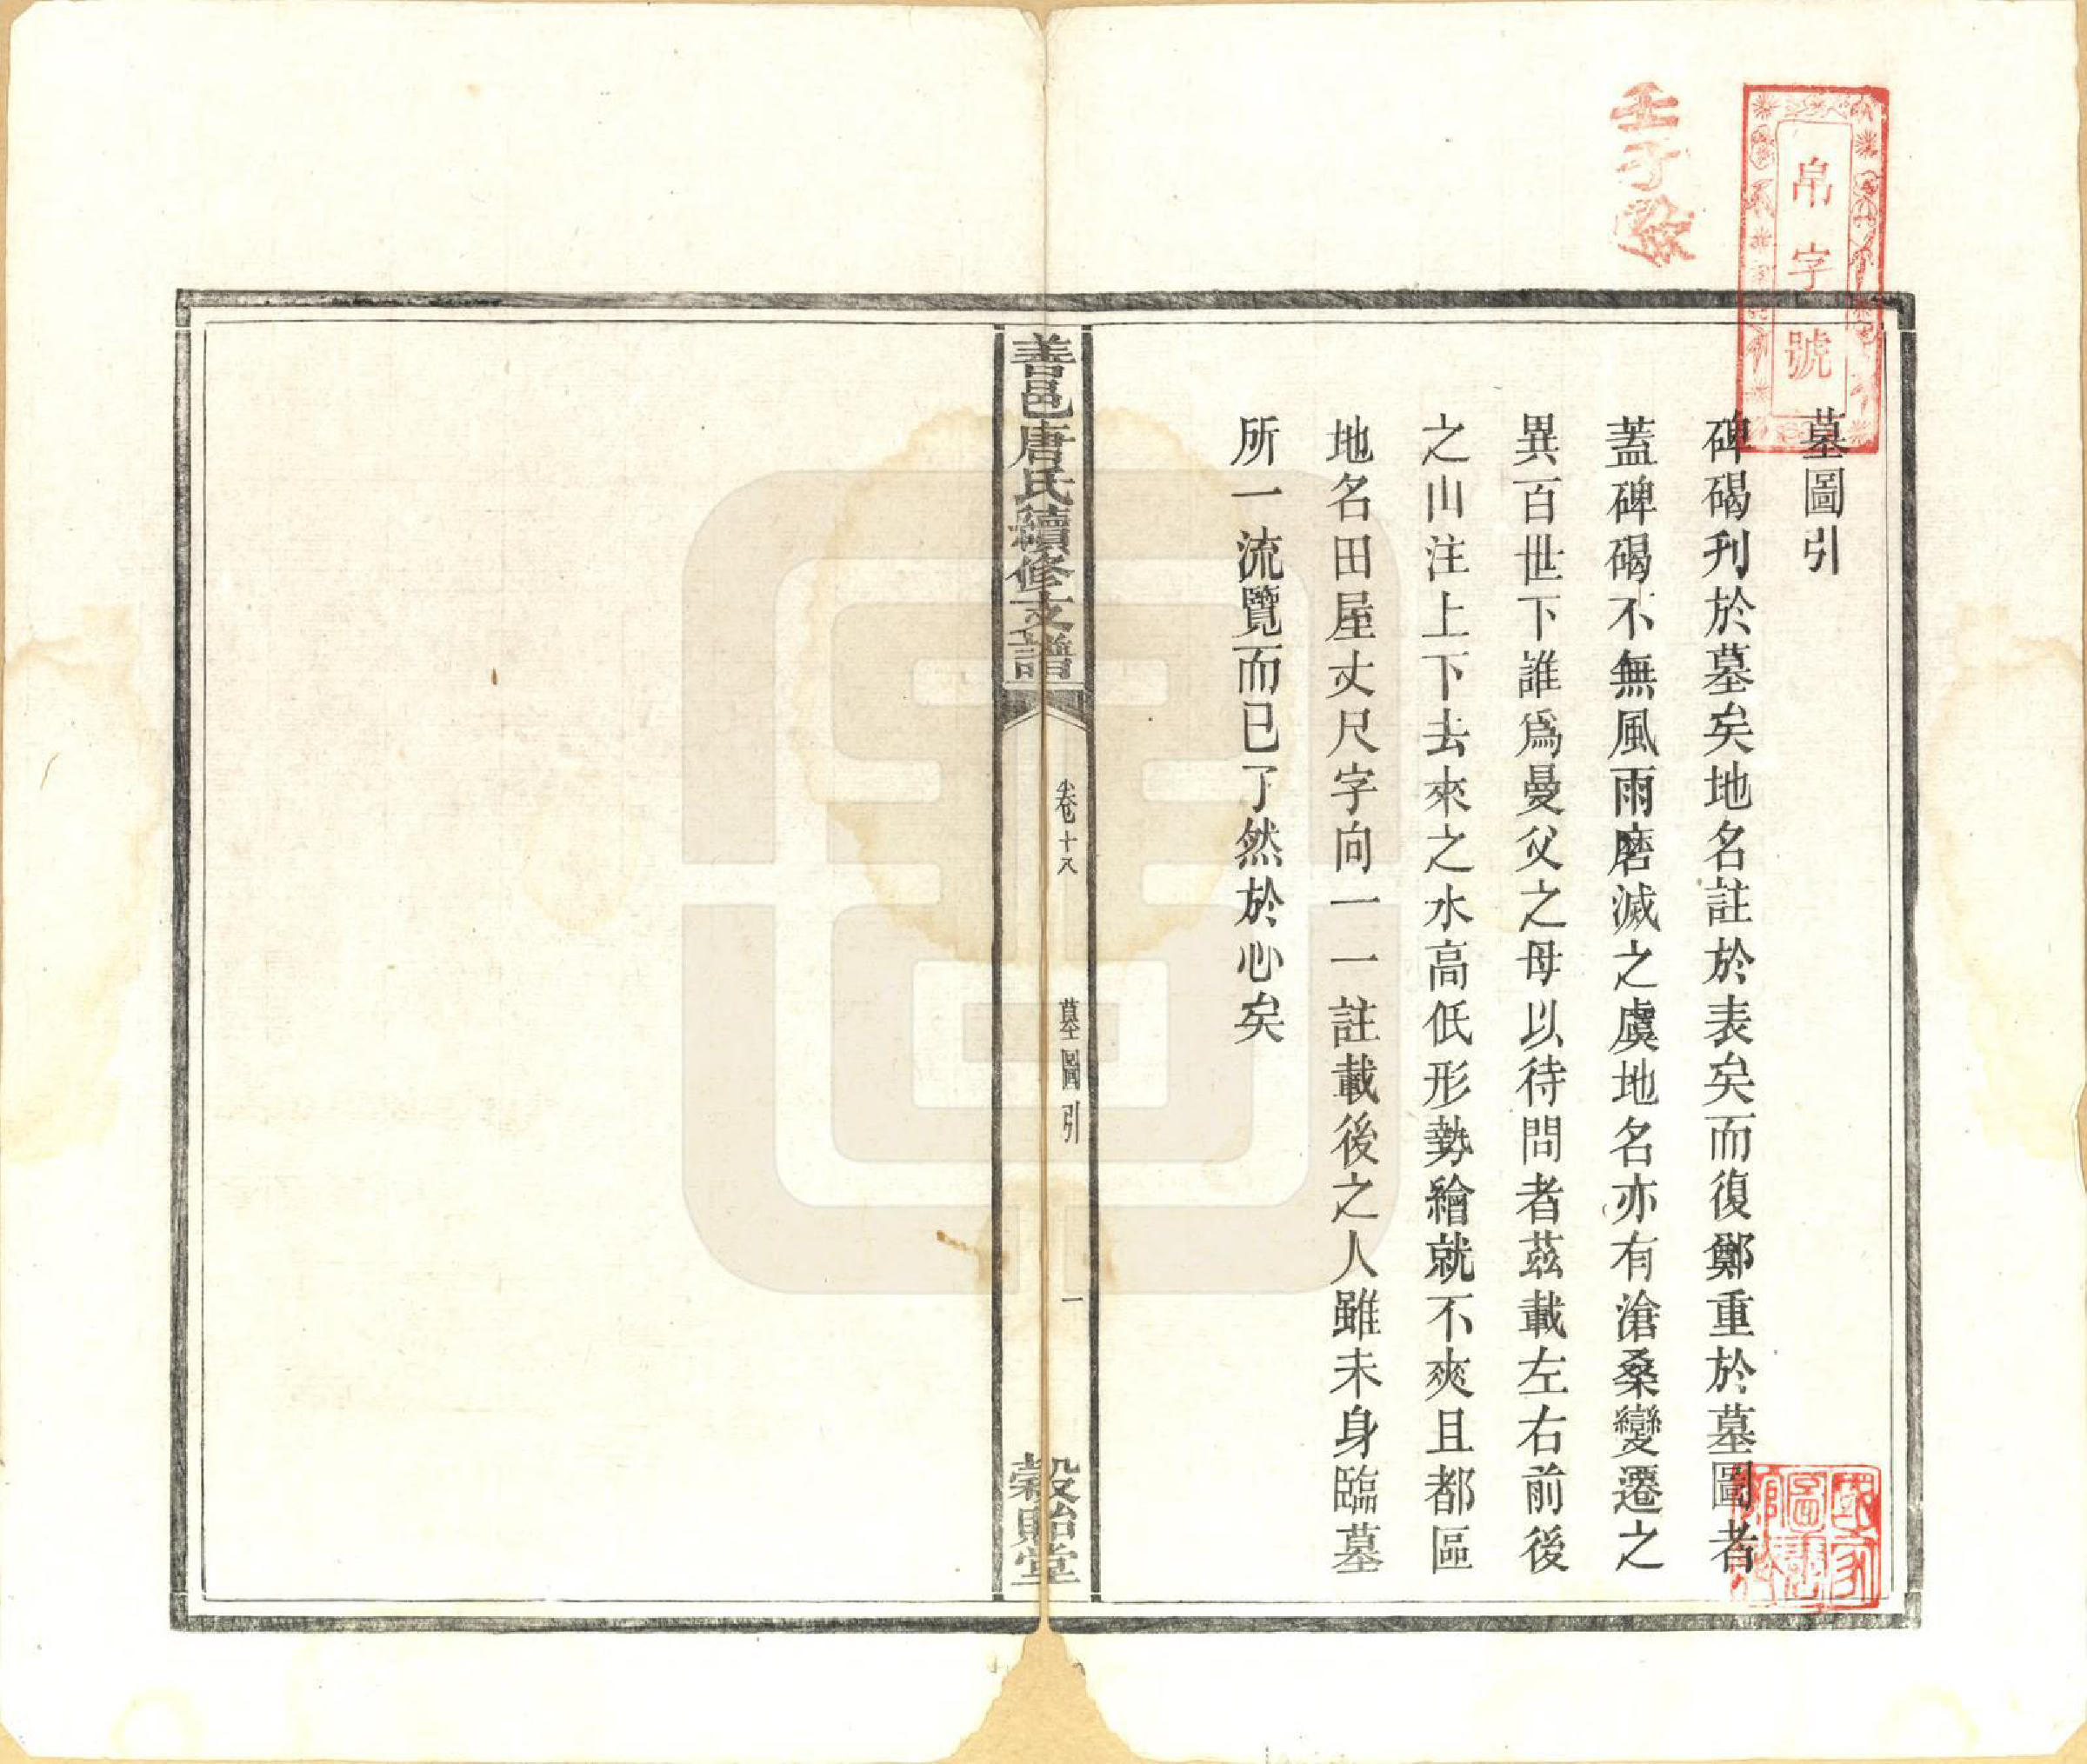 帛字號
墓圖引
碑碣刋於墓矣地名註於表矣而復鄭重於墓圖者
蓋碑碣不無風雨磨滅之虞地名亦有滄桑變遷之
異百世下誰爲曼父之母以待問者茲載左右前後
之山注上下去來之水高低形勢繪就不爽且都區
地名田屋丈尺字向一一註載後之人雖未身臨墓
所一流覽而已了然於心矣
善邑唐氏續修支譜
卷十八
墓圖引
一
穀貽堂